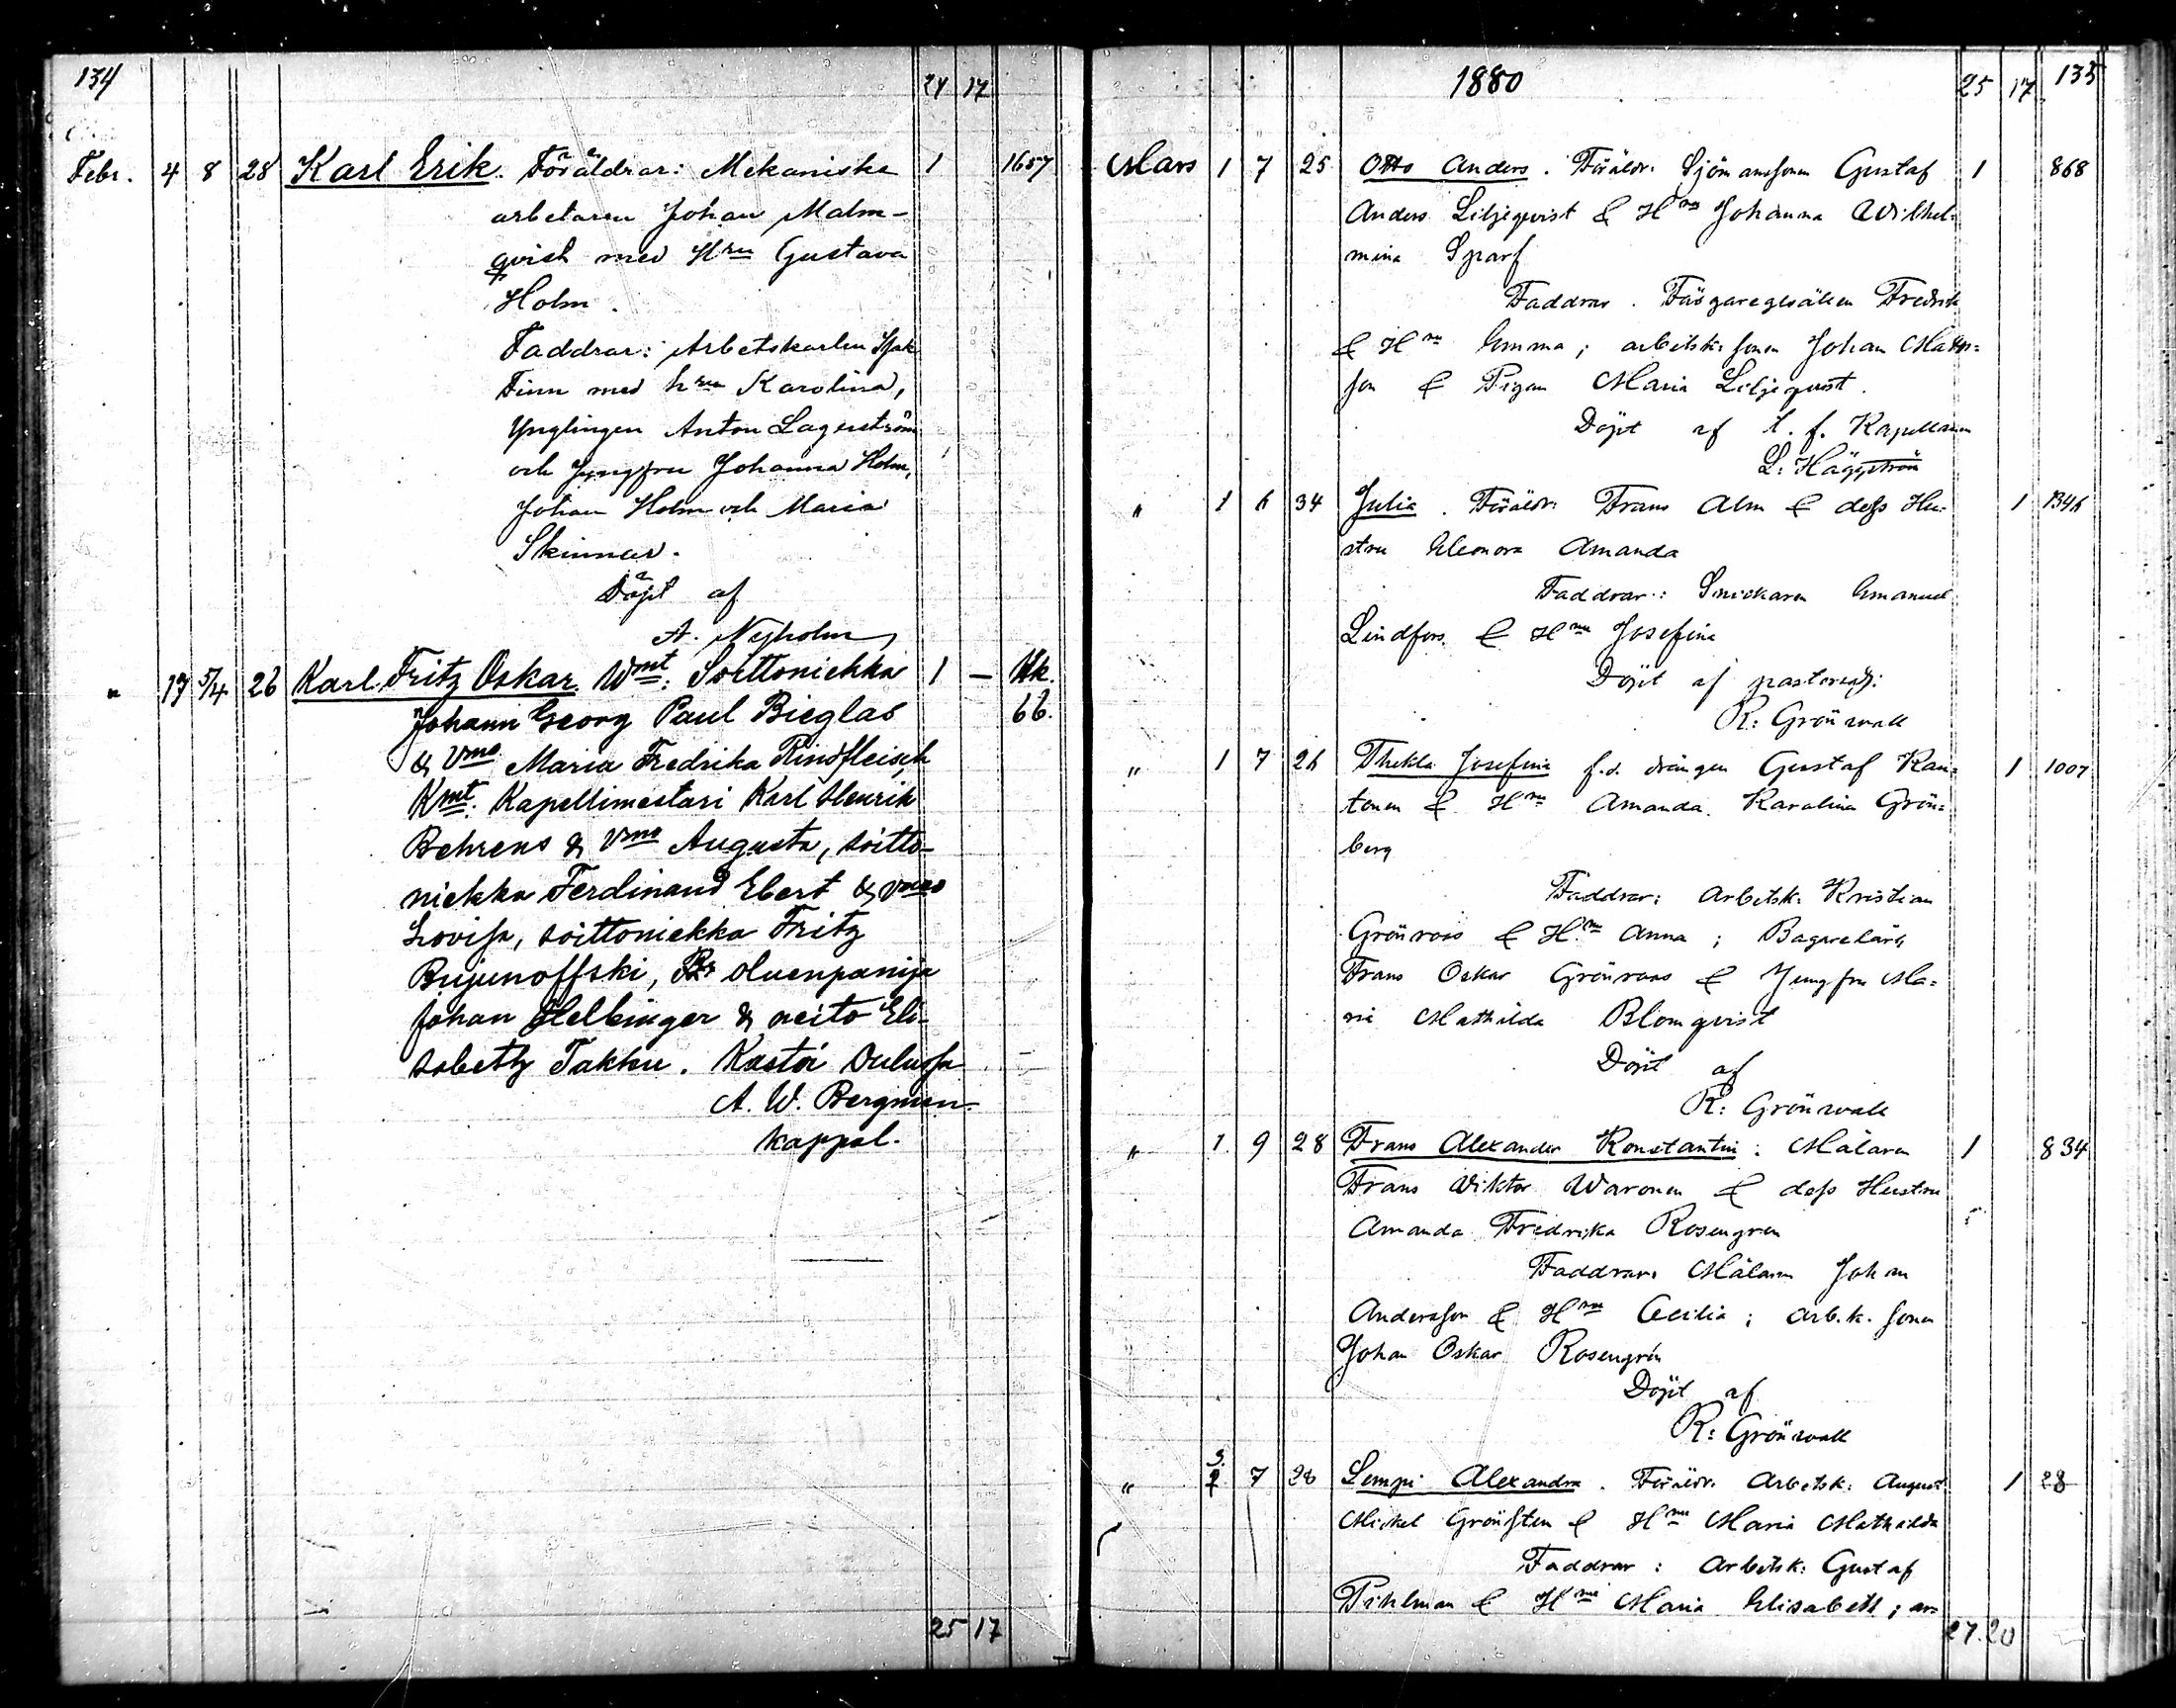 134 24 17
Febr. 4 8 28 Karl Erik. Föräldrar: Mekaniske 1 1657
arbetaren Johan Malm-
qvist med Hru Gustava
Holm.
Faddrar: Arbetskarlen Isak
Finn med hru Karolina,
Ynglingen Anton Lagerström
och Jungfru Johanna Holm,
Johan Holm och Maria
Skinnar.
Döpt af
A. Nyholm
" 17 5/4 26 Karl Fritz Oskar. Wmt: Soittoniekka 1 — Kk.
Johann Georg Paul Bieglas 66.
& Vmo Maria Fredrika Rindfleisch
Kmt. Kapellimestari Karl Henrik
Behrens & Vmo Augusta, soitto-
niekka Ferdinand Ebert & vmo
Lovisa, soittoniekka Fritz
Bujunoffski, oluenpanija
Johan Helbinger & neito Eli-
sabeth Takku. Kastoi Oulussa
A. W. Bergman.
kappal.
25 17
1880 25 17 135
Mars 1 7 25 Otto Anders. Föräldr: Sjömanssonen Gustaf 1 868
Anders Liljeqvist & Hru Johanna Wilhel-
mina Sparf
Faddrar. Färgaregesällen Fredrik
& Hru Emma; arbetsk: sonen Johan Matts-
son & Pigan Maria Liljeqvist.
Döpt af t. f. Kapellanen
L. Häggström
" 1 6 34 Julia. Föräldr: Frans Alm & dess Hu- 1 1346
stru Eleonora Amanda
Faddrar: Snickaren Emanuel
Lindfors & Hru Josefina
Döpt af pastorsadj:
R: Grönvall
" 1 7 26 Thekla Josefina f.d. drängen Gustaf Kan- 1 1007
tonen & Hru Amanda Karolina Grön-
berg
Faddrar: Arbetsk: Kristian
Grönroos & Hru Anna; Bagarelärl.
Frans Oskar Grönroos & Jungfru Ma-
ria Mathilda Blomqvist
Döpt af
R: Grönvall
" 1 9 28 Frans Alexander Konstantin: Målaren 1 834
Frans Viktor Waronen & dess Hustru
Amanda Fredrika Rosengren
Faddrar: Målaren Johan
Andersson & Hru Cecilia; arb.k. sonen
Johan Oskar Rosengrén
Döpt af
R: Grönvall
" 3. 7 28 Lempi Alexandra. Föräldr. Arbetsk: August 1 28
Mickel Grönsten & Hru Maria Mathilda
Faddrar: Arbetsk: Gustaf
Pihlman & Hru Maria Elisabeth; ar-
27. 20